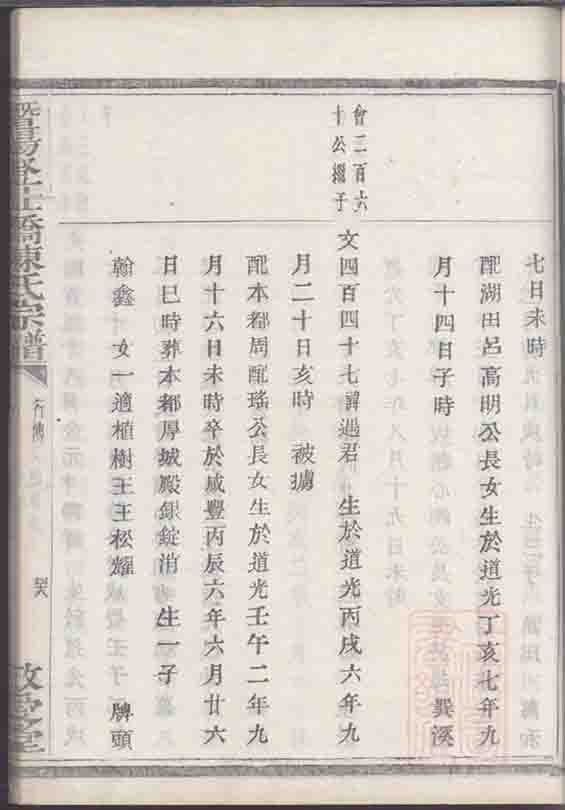 七日未時
配湖田呂高明公長女生於道光丁亥七年九
月十四日子時　巽溪
會二百六
十公擺子
文四百四十七諱遇君　生於道光丙戌六年九
月二十日亥時　被擄
配本都周配瑤公長女生於道光壬午二年九
月十六日未時卒於咸豐丙辰六年六月廿六
日巳時葬本都厚城殿銀錠消　生一子
翰鑫　女一適植樹王王松耀　牌頭
橋陳氏宗譜
行傳